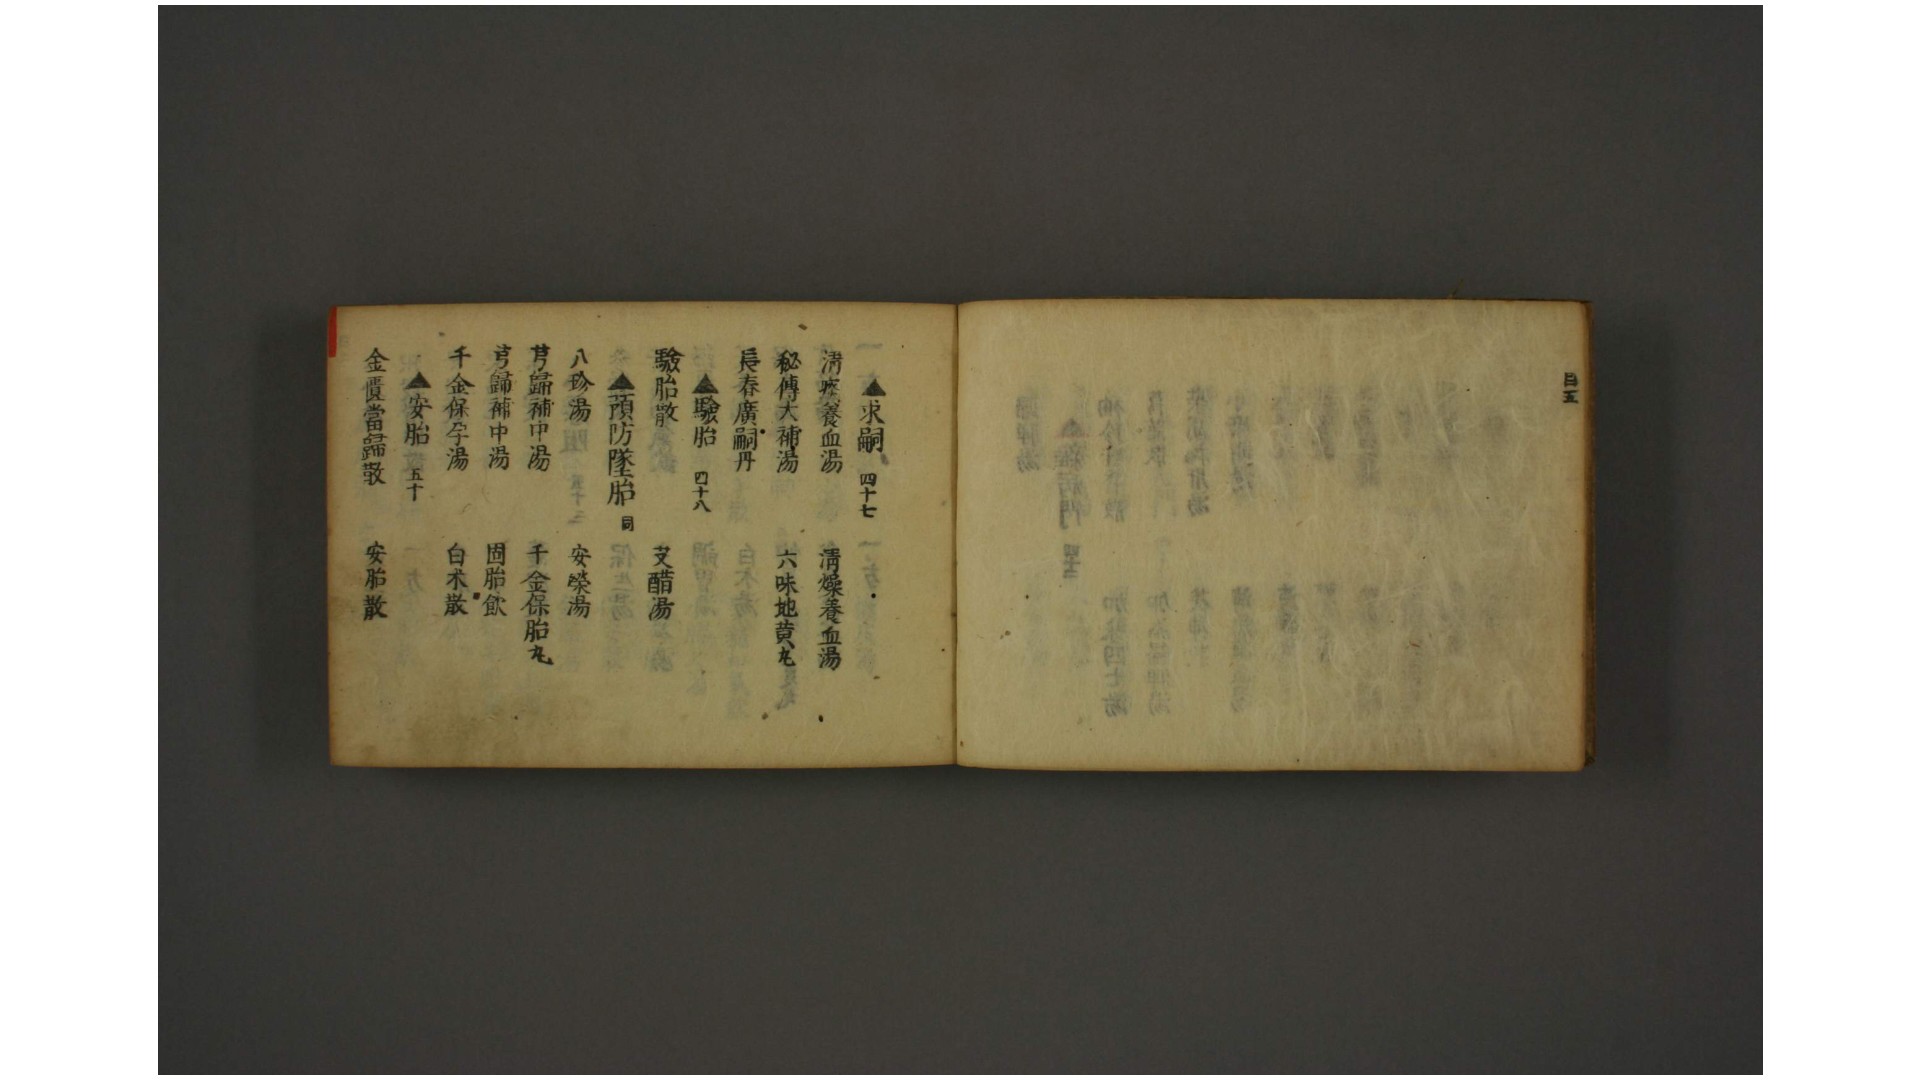 目五
▲求嗣 四十七
清痰養血湯 清燥養血湯
秘傳大補湯 六味地黄丸
長春廣嗣丹
▲驗胎 四十八
驗胎散 艾醋湯
▲預防墜胎 同
八珍湯 安榮湯
芎歸補中湯 千金保胎丸
芎歸補中湯 固胎飲
千金保孕湯 白朮散
▲安胎 五十
金匱當歸散 安胎散